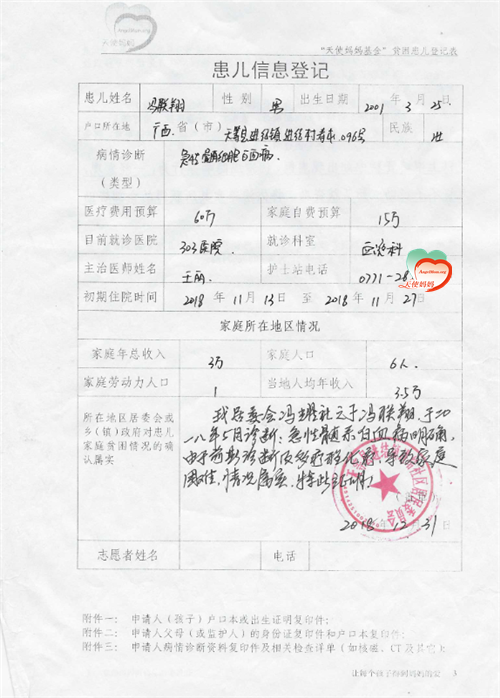 天使妈妈
AngelMom.org
"天使妈妈基金"贫困患儿登记表
患儿信息登记
患儿姓名 冯联翔 性别 男 出生日期 2001年3月25日
户口所在地 广西省（市）天等县进结镇进结村 096号 民族 壮
病情诊断（类型） 急性 细胞白血病
医疗费用预算 60万 家庭自费预算 15万
目前就诊医院 303医院 就诊科室 血液科
主治医师姓名 王丽 护士站电话 0771-28
AngelMom.org
天使妈妈
初期住院时间 2018年11月13日至2018年11月27日
家庭所在地区情况
家庭年总收入 3万 家庭人口 6人
家庭劳动力人口 1 当地人均年收入 3.5万
所在地区居委会或乡（镇）政府对患儿家庭贫困情况的确认属实
我居委会冯 社 冯联翔，于二〇
一八年5月诊断：急性髓系白血病明确，
由于前期诊断及多疗程化疗，导致家庭
困难，情况属实，特此证明！
2018年12月31日
志愿者姓名 电话
附件一： 申请人（孩子）户口本或出生证明复印件；
附件二： 申请人父母（或监护人）的身份证复印件和户口本复印件；
附件三： 申请人病情诊断资料复印件及相关检查详单（如核磁、CT及其它上
让每个孩子都对妈妈微笑 3